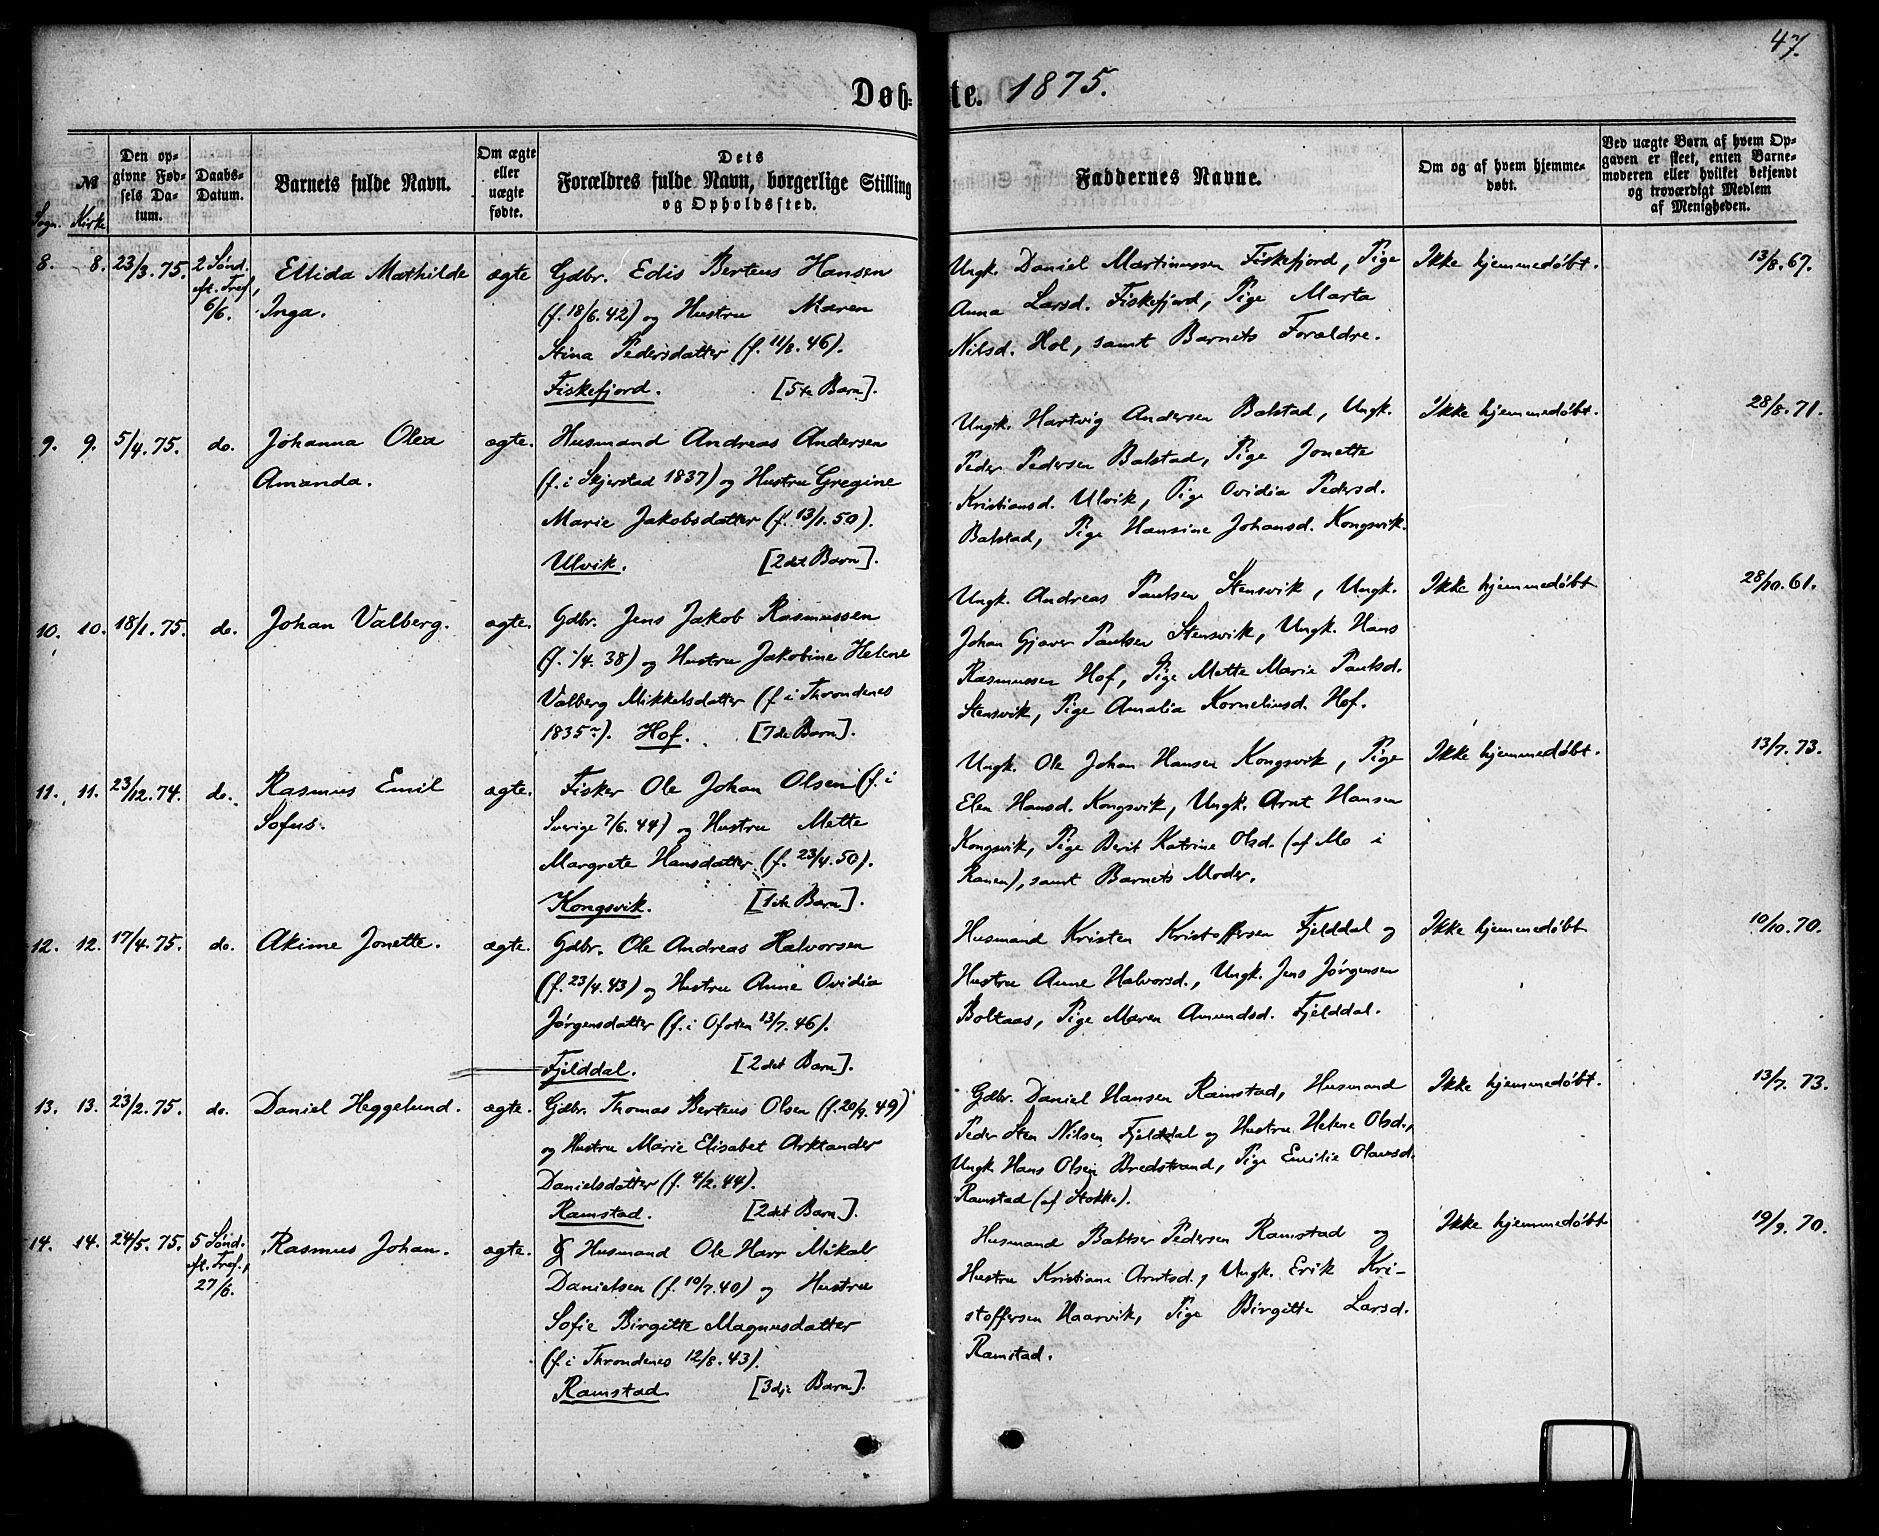 47.
Døb= te. 1875.
Sogn. № Kirke
Den op-
givne Fød-
sels Da-
tum.
Daabs-
Datum.
Barnets fulde Navn.
Om ægte
eller
uægte
fødte.
Dets
Forældres fulde Navn, borgerlige Stilling
og Opholdssted.
Faddernes Navne.
Om og af hvem hjemme-
døbt.
Ved uægte Børn af hvem Op-
gaven er skeet, enten Barne-
moderen eller hvilket bekjendt
og troværdigt Medlem
af Menigheden.
8. 8. 23/3. 75. 2 Sønd.
eft. Tref,
6/6.
Ellida Mathilde
Inga.
ægte
Gdbr. Edis Berteus Hansen
(f. 18/6. 42) og Hustru Maren
Stina Pedersdatter (f. 11/8. 46).
Fiskefjord. [5te Barn].
Ungk. Daniel Martinussen Fiskefjord, Pige
Anna Larsd. Fiskefjord, Pige Marta
Nilsd. Hol, samt Barnets Forældre.
Ikke hjemmedøbt.
13/8. 67.
9. 9. 5/4. 75. do.
Johanna Olea
Amanda.
ægte.
Husmand Andreas Andersen
(f. i Skjerstad 1837) og Hustru Gregine
Marie Jakobsdatter (f. 13/1. 50).
Ulvik. [2det Barn].
Ungk. Hartvig Andersen Balstad, Ungk.
Peder Pedersen Balstad, Pige Jonette
Kristiansd. Ulvik, Pige Ovidia Pedersd.
Balstad, Pige Hansine Johansd. Kongsvik.
Ikke hjemmedøbt.
28/8. 71.
10. 10. 18/1. 75. do.
Johan Valberg.
ægte.
Gdbr. Jens Jakob Rasmussen
(f. 1/4. 38) og Hustru Jakobine Helene
Valberg Mikkelsdatter (f i Throndenes
1835). Hof. [7de Barn].
Ungk. Andreas Paulsen Stensvik, Ungk.
Johan Gjæver Paulsen Stensvik, Ungk. Hans
Rasmussen Hof, Pige Mette Marie Paulsd.
Stensvik, Pige Amalia Korneliusd. Hof.
Ikke hjemmedøbt
28/10. 61.
11. 11. 23/12. 74. do.
Rasmus Emil
Sofus.
ægte.
Fisker Ole Johan Olsen (f. i
Sverige 7/6. 44) og Hustru Mette
Margrete Hansdatter (f. 23/4. 50).
Kongsvik. [1ste Barn].
Ungk. Ole Johan Hansen Kongsvik, Pige
Elen Hansd. Kongsvik, Ungk. Arnt Hansen
Kongsvik, Pige Berit Katrine Olsd. (af Mo i
Ranen), samt Barnets Moder.
Ikke hjemmedøbt.
13/7. 73.
12. 12. 17/4. 75. do.
Akime Jonette.
ægte.
Gdbr. Ole Andreas Halvorsen
(f. 23/4. 43) og Hustru Anne Ovidia
Jørgensdatter (f. i Ofoten 13/7. 46).
Fjelddal. [2det Barn].
Husmand Kristen Kristoffersen Fjelddal og
Hustru Anne Halvorsd., Ungk. Jens Jørgensen
Boltaas, Pige Maren Amundsd. Fjelddal.
Ikke hjemmedøbt
10/10. 70.
13. 13. 23/2. 75. do.
Daniel Heggelund.
ægte.
Gdbr. Thomas Berteus Olsen (f. 20/9. 49)
og Hustru Marie Elisabet Arktander
Danielsdatter (f. 4/2. 44).
Ramstad. [2det Barn].
Gdbr. Daniel Hansen Ramstad, Husmand
Peder Sten Nilsen Fjelddal og Hustru Helene Olsd.,
Ungk. Hans Olsen Bredstrand, Pige Emilie Olausd.
Ramstad (af Stokke).
Ikke hjemmedøbt.
13/7. 73.
14. 14. 24/5. 75. 5 Sønd.
eft. Tref.,
27/6.
Rasmus Johan.
ægte.
Husmand Ole Harr Mikal
Danielsen (f. 10/7. 40) og Hustru
Sofie Birgitte Magnusdatter
(f. i Throndenes 12/8. 43).
Ramstad [3dje Barn].
Husmand Baltser Pedersen Ramstad og
Hustru Kristiane Arntsd., Ungk. Erik Kri-
stoffersen Haarvik, Pige Birgitte Larsd.
Ramstad.
Ikke hjemmedøbt
19/9. 70.